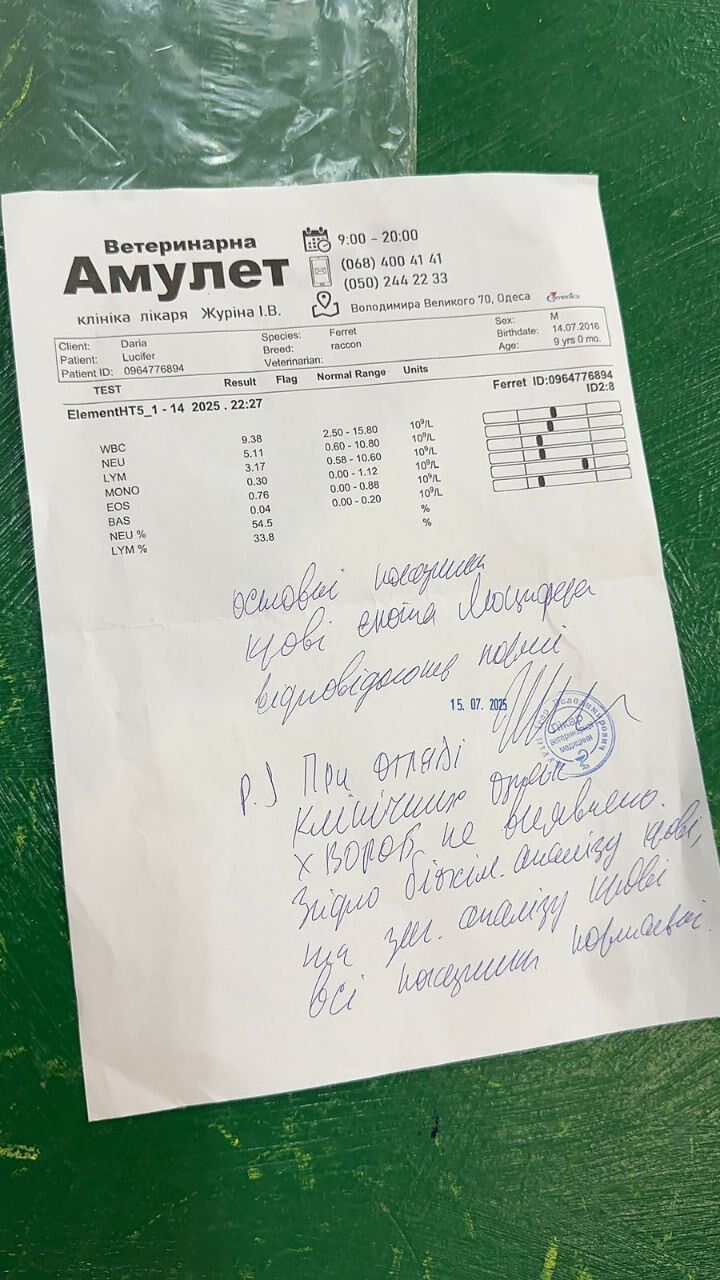 Ветеринарна
Амулет
клініка лікаря Журіна І.В.
9:00 - 20:00
(068) 400 41 41
(050) 244 22 33
Володимира Великого 70, Одеса
Client: Daria Species: Ferret Sex: M
Patient: Lucifer Breed: raccon Birthdate: 14.07.2016
Patient ID: 0964776894 Veterinarian: Age: 9 yrs 0 mo.
TEST Result Flag Normal Range Units Ferret ID:0964776894
ElementHT5_1 - 14 2025 . 22:27 ID2:8
WBC 9.38 2.50 - 15.80 10^9/L
NEU 5.11 0.60 - 10.80 10^9/L
LYM 3.17 0.58 - 10.60 10^9/L
MONO 0.30 0.00 - 1.12 10^9/L
EOS 0.76 0.00 - 0.88 10^9/L
BAS 0.04 0.00 - 0.20 10^9/L
NEU % 54.5 %
LYM % 33.8 %
основні показники
крові єнота Люцифера
відповідають нормі
15. 07. 2025
Лікар
ветеринарної
медицини
Володимирович
P.S При огляді
клінічних ознак
хвороб не виявлено.
Згідно біохім. аналізу крові,
та заг. аналізу крові
всі показники нормальні.